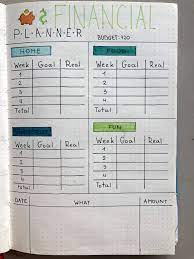 FINANCIAL
P-L-A-N-N-E-R
BUDGET:
HOME
Week Goal Real
1
2
3
4
Total
FOOD
Week Goal Real
1
2
3
4
Total
Week Goal Real
1
2
3
4
Total
FUN
Week Goal Real
1
2
3
4
Total
DATE WHAT AMOUNT